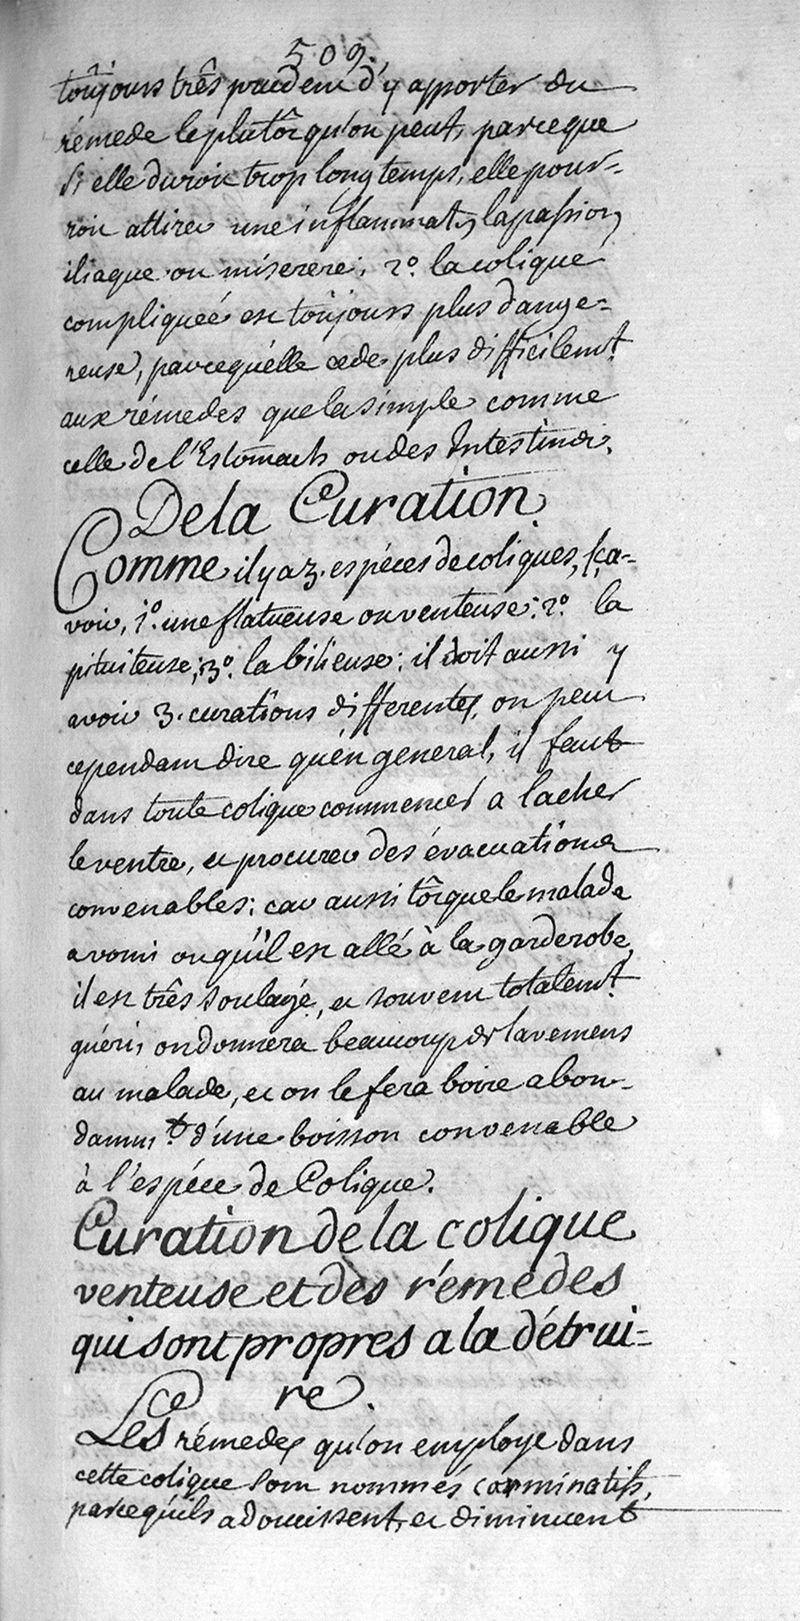 509.
toûjours très prudent d'y apporter du
rémede le plutôt qu'on peut, parceque
si elle duroit trop long temps, elle pour-
roit attirer une inflammatn, la passion
iliaque ou miserere; 2º. la colique
compliqueé est toûjours plus dange-
reuse, parcequ'elle cede plus difficilemt.
aux rémedes que la simple comme
celle de l'Estomach ou des Intestins.
De la Curation.
Comme il y a 3. espéces de coliques, sça-
voir, 1º. une flatueuse ou venteuse: 2º. la
pituiteuse; 3º. la bilieuse: il doit aussi y
avoir 3. curations differentes, on peut
cependant dire qu'en general, il faut
dans toute colique commencer a lacher
le ventre, et procurer des évacuations
convenables: car aussi tôt que le malade
a vomi ou qu'il est allé à la garderobe,
il est très soulagé, et souvent totalemt.
guéri, on donnera beaucoup de lavemens
au malade, et on le fera boire abon-
dammt. d'une boisson convenable
à l'espéce de Colique.
Curation de la colique
venteuse et dès rémedes
qui sont propres a la détrui=
re.
Les rémedes qu'on employe dans
cette colique sont nommés carminatifs,
parcequ'ils adoucissent, et diminuent